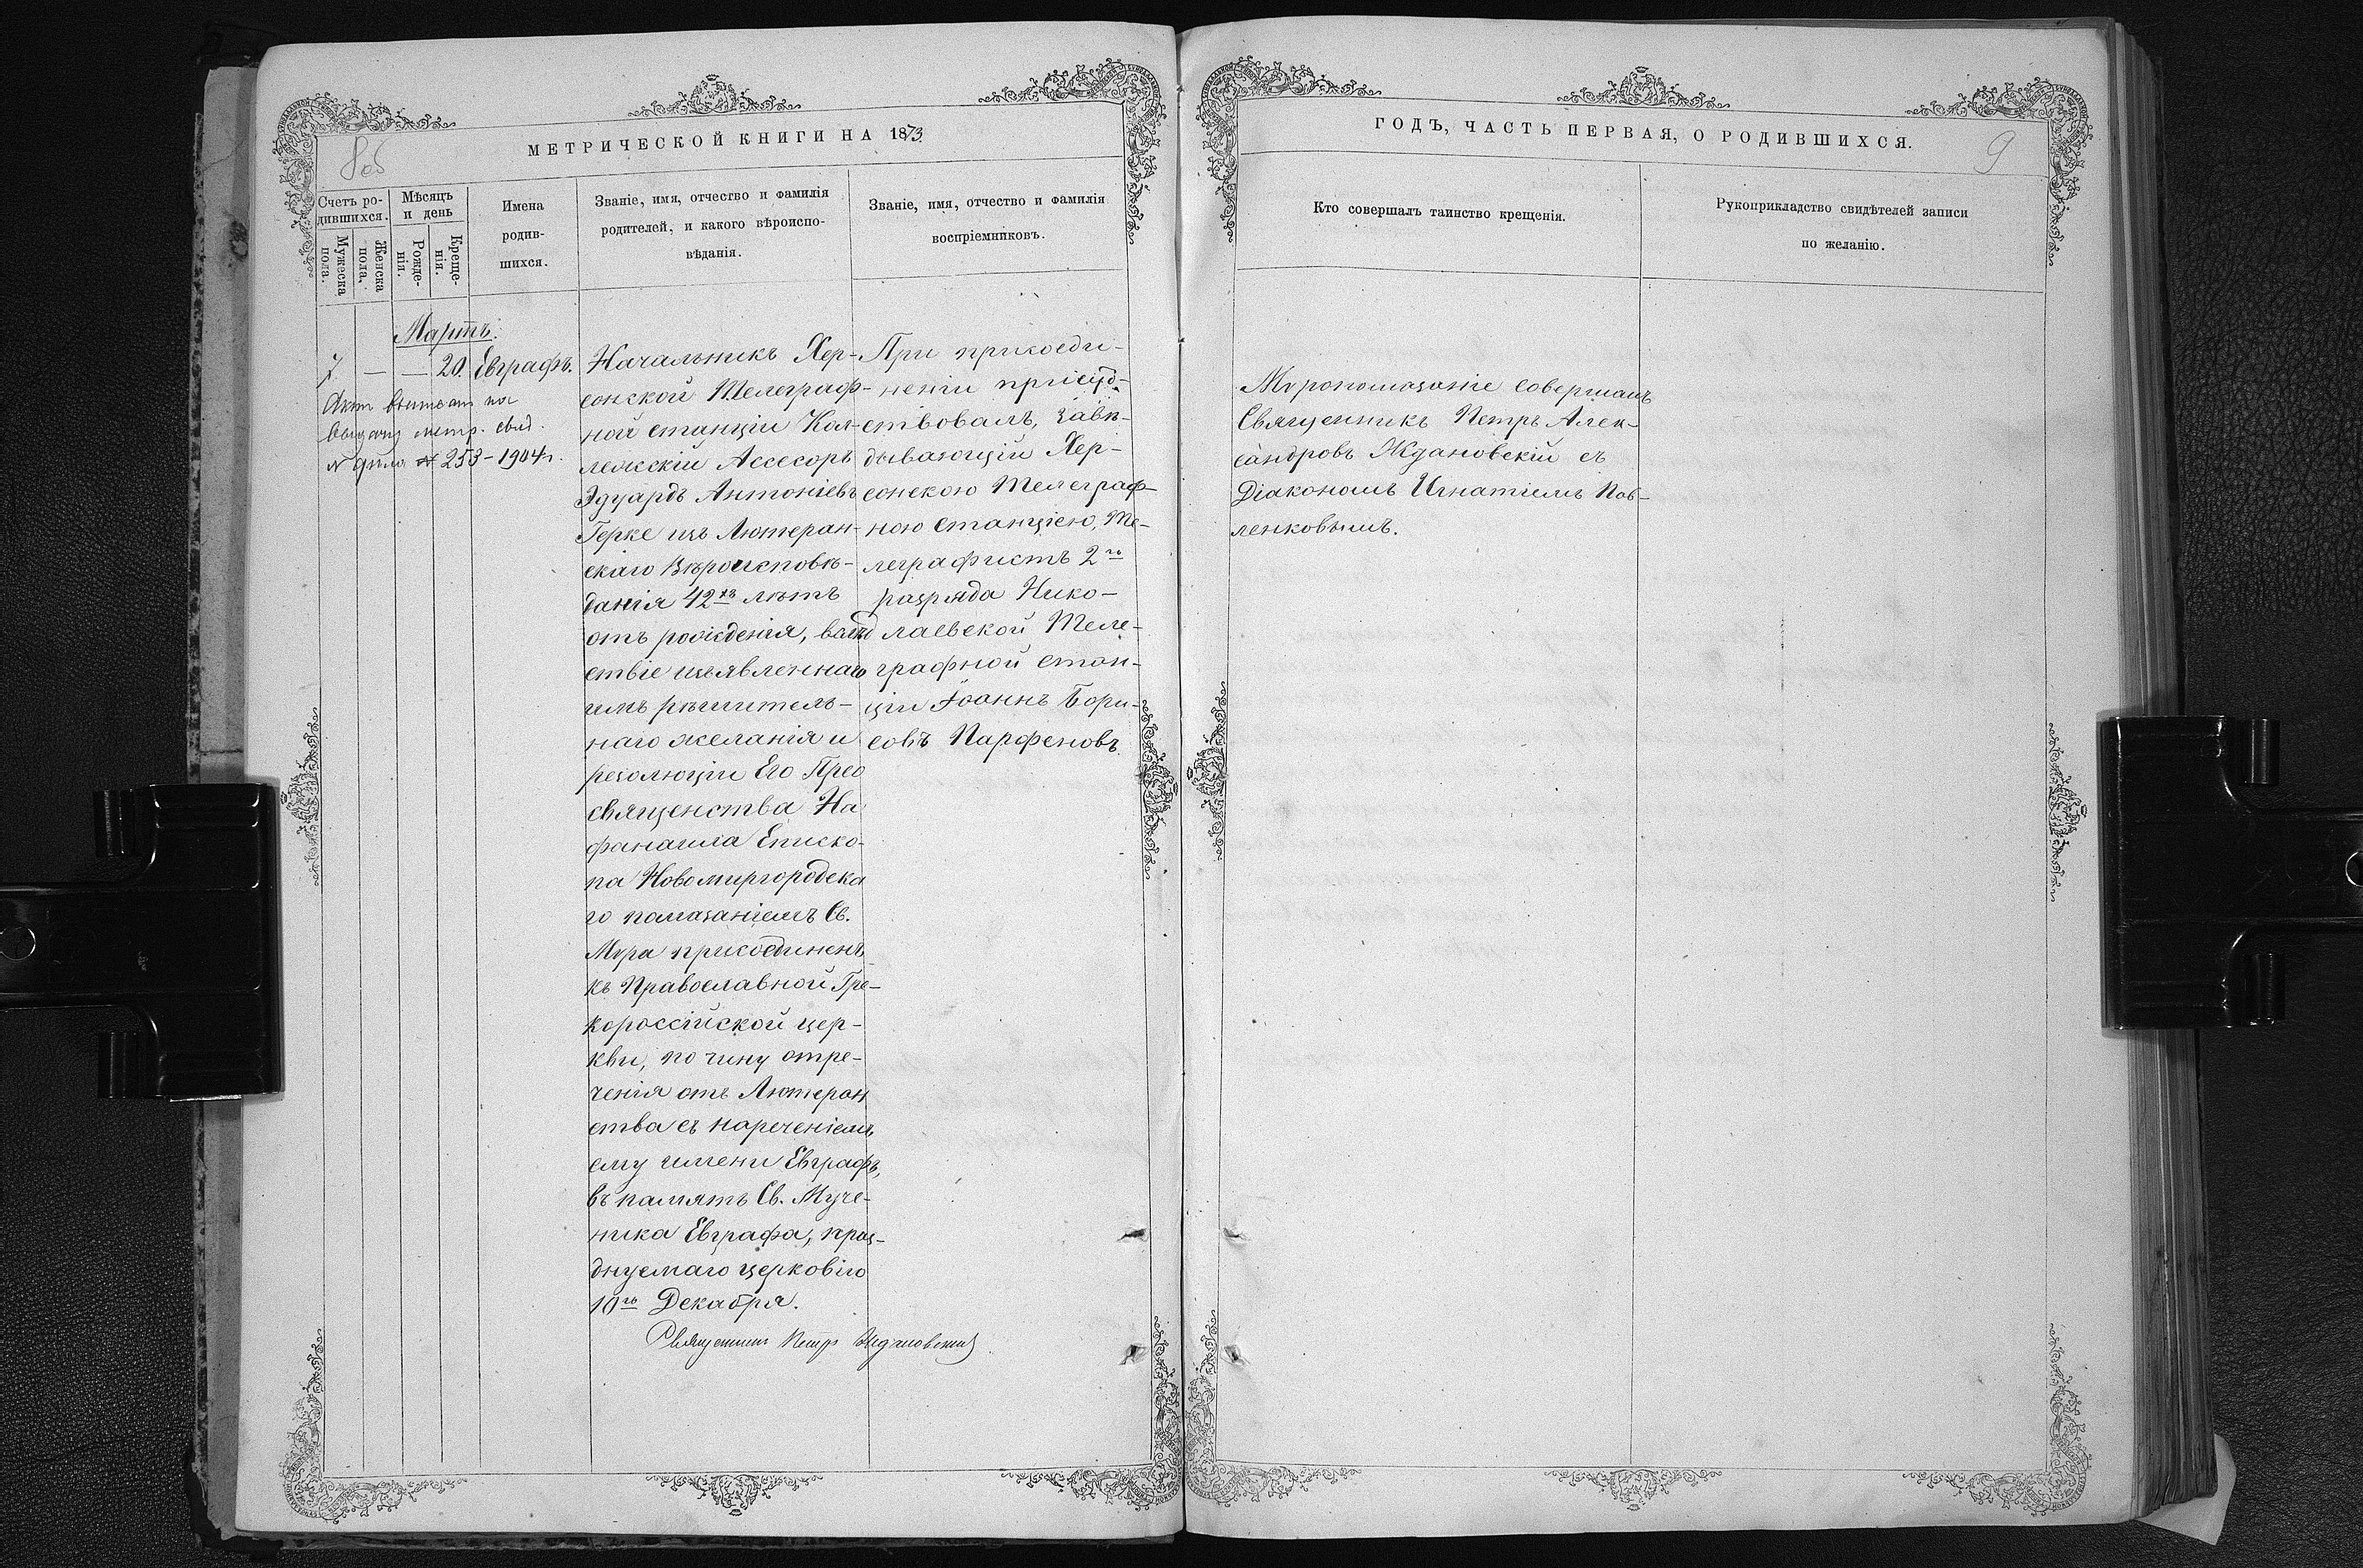 МЕТРИЧЕСКОЙ КНИГИ НА 1873
8об
Счетъ ро-
дившихся.
Мужеска
пола.
Женска
пола.
Мѣсяцъ
и день
Рожде-
нія.
Креще-
нія.
Имена
родив-
шихся.
Званіе, имя, отчество и фамилія
родителей, и какого вѣроиспо-
вѣданія.
Званіе, имя, отчество и фамилія
воспріемниковъ.
Мартъ.
7 — — 20. Евграфъ.
Акт выписан на
выдачу метр. свид.
N дѣла 253 - 1904 г.
Начальникъ Хер-
сонской Телеграф-
ной станціи Кол-
лежскій Ассесоръ
Эдуардъ Антоніевъ
Герке изъ Лютеран-
скаго Вѣроисповѣ-
данія 42хъ лѣтъ
отъ рожденія, вслѣд
ствіе изъявленнаго
имъ рѣшитель-
наго желанія и
резолюціи Его Прео
священства На
фанаила Еписко-
па Новомиргородска
го помазаніемъ Св.
Мѵра присоединенъ
къ Православной Гре-
короссійской цер-
кви, по чину отре-
ченія отъ Лютеран
ства съ нареченіемъ
ему имени Евграфъ,
въ память Св. Муче-
ника Евграфа, праз-
днуемаго церковію
10го Декабря.
Священникъ Петръ Ждановскій
При присоеди-
неніи присуд-
ствовалъ, завѣ-
дывающій Хер-
сонскою Телеграф-
ною станціею, Те-
леграфистъ 2го
разряда Нико-
лаевской Теле-
графной стан-
ціи Іоаннъ Бори-
совъ Парфеновъ
ГОДЪ, ЧАСТЬ ПЕРВАЯ, О РОДИВШИХСЯ.
9
Кто совершалъ таинство крещенія.
Рукоприкладство свидѣтелей записи
по желанію.
Мѵропомазаніе совершалъ
Священникъ Петръ Алек-
сандровъ Ждановскій съ
Діакономъ Игнатіемъ Пав-
ленковымъ.